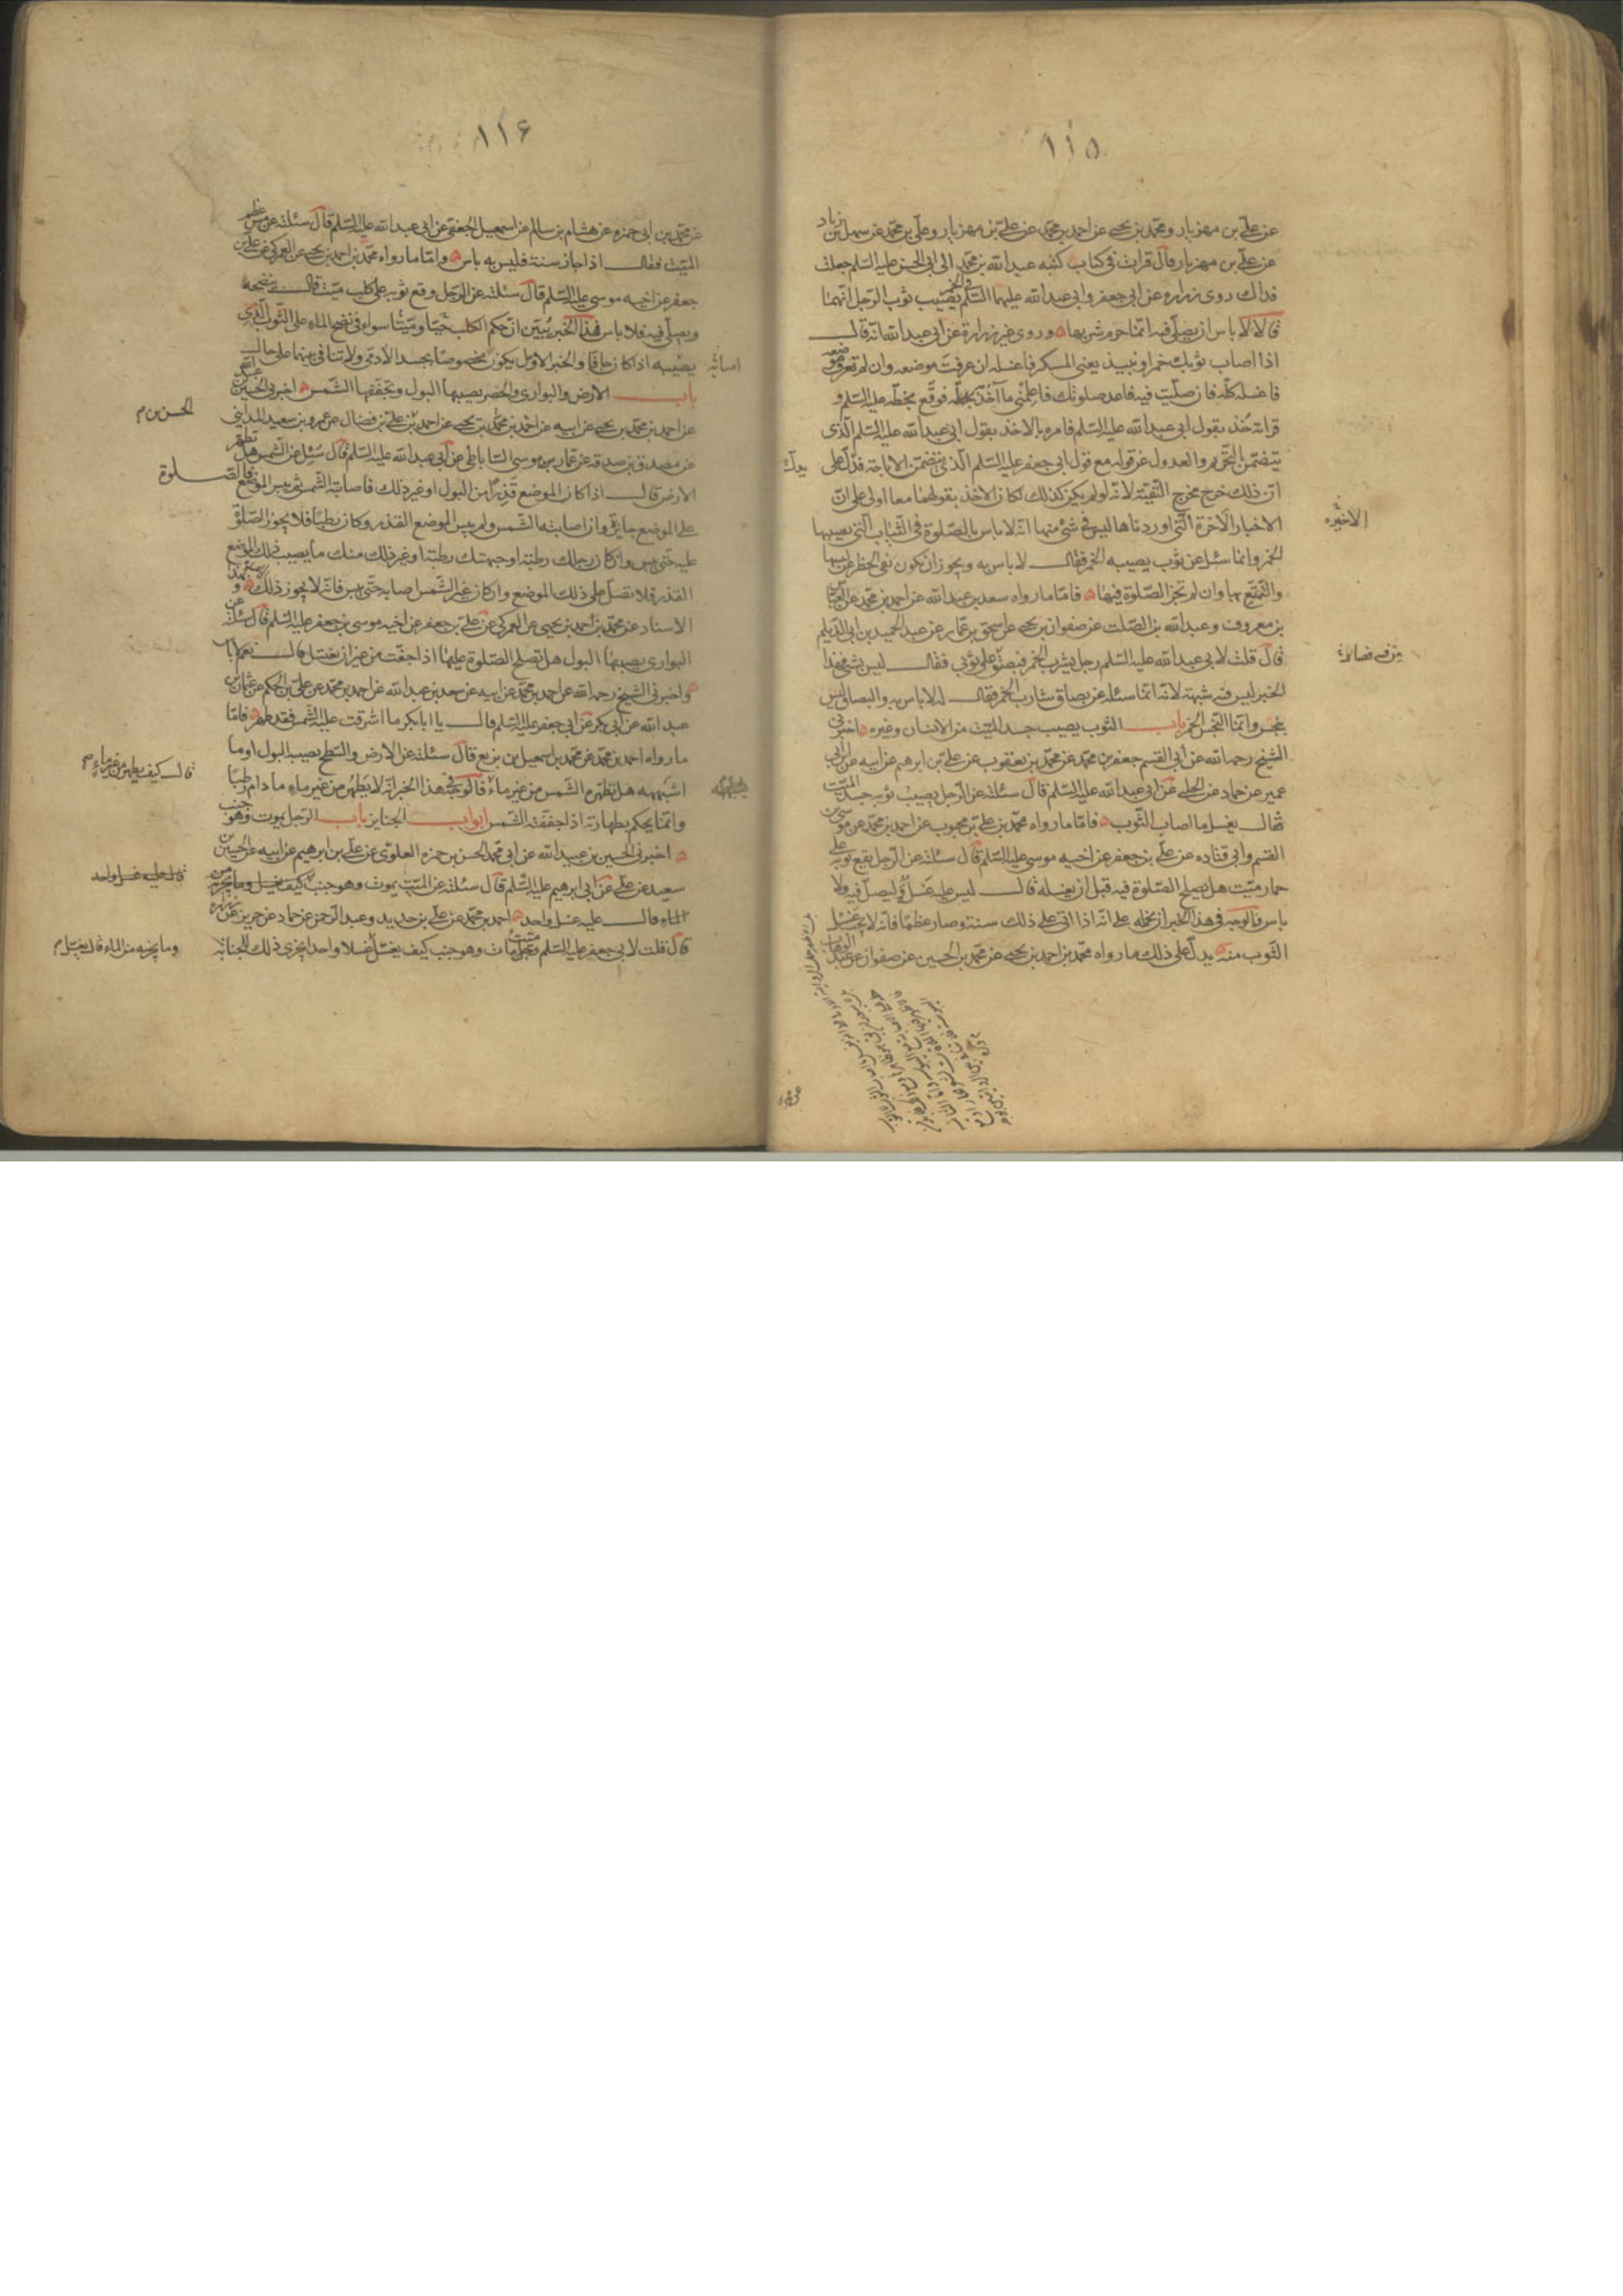 ١١٥
عن علي بن مهزيار ومحمد بن يحيى عن احمد بن محمد عن علي بن مهزيار وعلي بن محمد عن سهل بن زياد
عن علي بن مهزيار قال قرات في كتاب كتبه عبد الله بن محمد الى ابي الحسن عليه السلم جعلت
فداك روى زراره عن ابي جعفر وابي عبد الله عليهما السلم في الخمر يصيب ثوب الرجل انهما
قالا لا باس ان يصلى فيه انما حرم شربها وروى غير زرارة عن ابي عبد الله انه قال
اذا اصاب ثوبك خمر او نبيذ يعنى المسكر فاغسله ان عرفت موضعه وان لم تعرف موضعه
فاغسله كله فان صليت فيه فاعد صلوتك فاعلمني ما آخذ به فوقع بخطه عليه السلم و
قراته خذ بقول ابي عبد الله عليه السلم فامره بالاخذ بقول ابي عبد الله عليه السلم الذى
يتضمن التحريم والعدول عن قوله مع قول ابي جعفر عليه السلم الذي يتضمن الاباحة فدل على
يدل
ان ذلك خرج مخرج التقية لانه لو لم يكن كذلك لكان الاخذ بقولهما معا اولى على ان
الاخبار الاخرة التي اوردناها ليس في شئ منها انه لا باس بالصلوة في الثياب التي يصيبها
الاخيره
الخمر وانما سئل عن ثوب يصيبه الخمر فقال لا باس به ويجوز ان تكون نفى الحظر عن لبسها
والتمتع بها وان لم تجز الصلوة فيها فاما ما رواه سعد بن عبد الله عن احمد بن محمد عن العباس
بن معروف وعبد الله بن الصلت عن صفوان بن يحيى عن اسحق بن عمار عن عبد الحميد بن ابي الديلم
قال قلت لابي عبد الله عليه السلم رجل يشرب الخمر فبصق على ثوبي فقال ليس بشئ فهذا
الخبر ليس فيه شبهة لانه انما سئله عن بصاق شارب الخمر فقال له لا باس به والبصاق ليس
بنجس وانما النجس الخمر باب الثوب يصيب جسد الميت من الانسان وغيره اخبرني
الشيخ رحمه الله عن ابي القسم جعفر بن محمد عن محمد بن يعقوب عن علي بن ابرهيم عن ابيه عن ابن ابي
عمير عن حماد عن الحلبي عن ابي عبد الله عليه السلم قال سئلته عن الرجل يصيب ثوبه جسد الميت
فقال يغسل ما اصاب الثوب فاما ما رواه محمد بن علي بن محبوب عن احمد بن محمد عن موسى بن
القسم وابي قتاده عن علي بن جعفر عن اخيه موسى عليه السلم قال سئلته عن الرجل يقع ثوبه على
حمار ميت هل يصلح الصلوة فيه قبل ان يغسله قال ليس عليه غسل وليصل فيه ولا
باس فالوجه في هذا الخبر ان نحمله على انه اذا اتى على ذلك سنة وصار عظما فانه لا يجب غسل
الثوب منه يدل على ذلك ما رواه محمد بن احمد بن يحيى عن محمد بن الحسين عن صفوان عن عبد الوهاب
١١۶
عن محمد بن ابي حمزه عن هشام بن سالم عن اسمعيل الجعفي عن ابي عبد الله عليه السلم قال سئلته عن مس عظم
الميت فقال اذا جاز سنة فليس به باس واما ما رواه محمد بن احمد بن يحيى عن العمركي عن علي بن
جعفر عن اخيه موسى عليه السلم قال سئلته عن الرجل وقع ثوبه على كلب ميت قال ينضحه
ويصلى فيه فلا باس فهذا الخبر يبين ان حكم الكلب حيا وميتا سواء في نضح الماء على الثوب الذى
يصيبه اذا كان جافا والخبر الاول يكون مخصوصا بجسد الادمي ولا تنافي بينهما على حال
باب الارض والبوارى والحصر يصيبها البول وتجففها الشمس اخبرني الحسين بن عبيد الله
عن احمد بن محمد بن يحيى عن ابيه عن احمد بن محمد بن يحيى عن احمد بن علي بن فضال عن عمرو بن سعيد المدايني
الحسن بن م
عن مصدق بن صدقه عن عمار بن موسى الساباطي عن ابي عبد الله عليه السلم قال سئل عن الشمس هل تطهر
الارض قال اذا كان الموضع قذرا من البول او غير ذلك فاصابته الشمس ثم يبس الموضع فالصلوة
على الموضع جايزة وان اصابته الشمس ولم ييبس الموضع القذر وكان رطبا فلا يجوز الصلوة
عليه حتى ييبس وان كان رجلك رطبة او جبهتك رطبة او غير ذلك منك ما يصيب ذلك الموضع
القذر فلا تصل على ذلك الموضع وان كان غير الشمس اصابه حتى يبس فانه لا يجوز ذلك و
الاسناد عن محمد بن احمد بن يحيى عن العمركي عن علي بن جعفر عن اخيه موسى بن جعفر عليه السلم قال سئلته عن
البوارى يصيبها البول هل تصلح الصلوة عليها اذا جفت من غير ان يغسل قال نعم لا باس
واخبرني الشيخ رحمه الله عن احمد بن محمد عن ابيه عن سعد بن عبد الله عن احمد بن محمد عن علي بن الحكم عن عثمان بن
عبد الله عن ابي بكر عن ابي جعفر عليه السلم قال يا ابا بكر ما اشرقت عليه الشمس فقد طهر فاما
ما رواه احمد بن محمد عن محمد بن اسمعيل بن بزيع قال سئلته عن الارض والسطح يصيبه البول او ما
اشبهه هل تطهره الشمس من غير ماء فالوجه في هذا الخبر انه لا يطهر من غير ماء ما دام رطبا
قال كيف يطهر من غير ماء م
وانما يحكم بطهارته اذا جففته الشمس ابواب الجنايز باب الرجل يموت وهو جنب
اخبرني الحسين بن عبيد الله عن ابي محمد الحسن بن حمزه العلوى عن علي بن ابرهيم عن ابيه عن الحسين بن
سعيد عن علي عن ابي ابرهيم عليه السلم قال سئلته عن الميت يموت وهو جنب كيف يغسل وما يجزيه من
قال عليه غسل واحد
الماء قال عليه غسل واحد احمد بن محمد عن علي بن حديد وعبد الرحمن عن حماد عن حريز عن زراره
قال قلت لابي جعفر عليه السلم ميت مات وهو جنب كيف يغسل غسلا واحدا يجزى ذلك للجنابة
وما يجزيه من الماء قال يغسل م